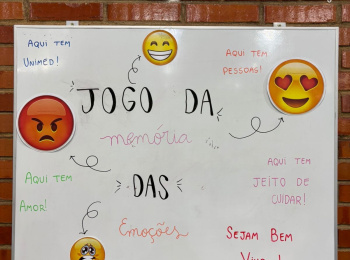 AQUI TEM
UNIMED!
AQUI TEM
PESSOAS!
JOGO DA
memória
DAS
Emoções
AQUI TEM
AMOR!
AQUI TEM
JEITO DE
CUIDAR!
SEJAM BEM